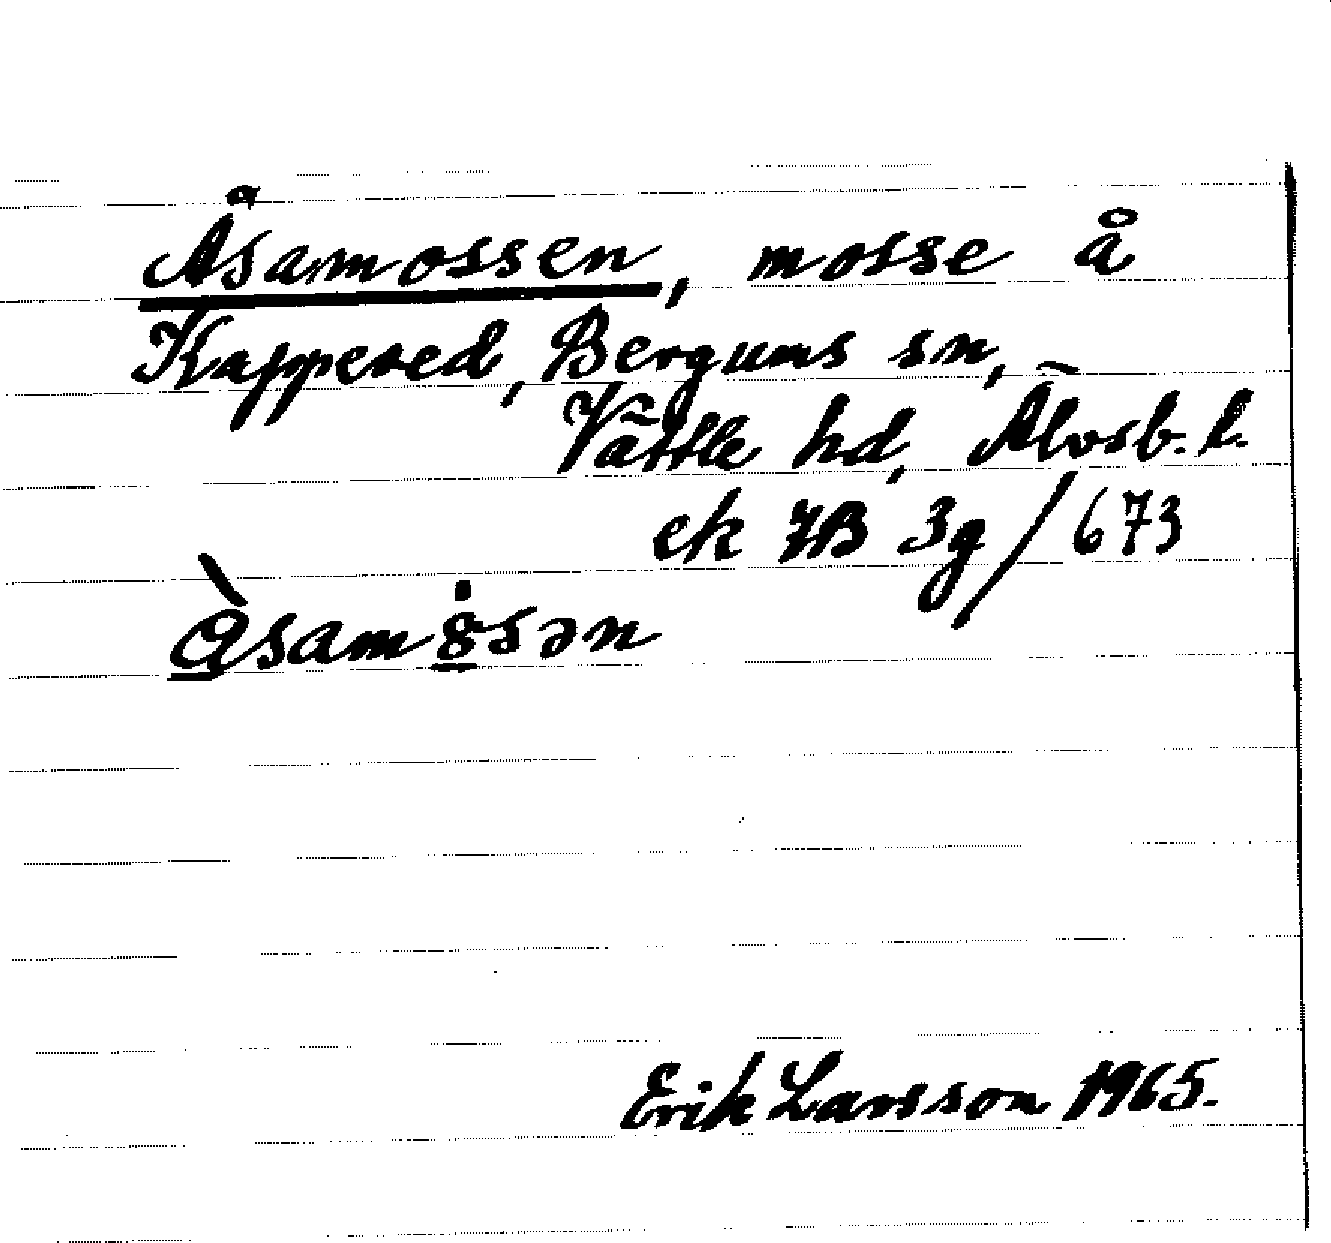 Åsamossen, mosse å
Kappered, Bergums sn,
Vättle hd, Älvsb. l.
ek 7B 3g/673
Erik Larsson 1965.